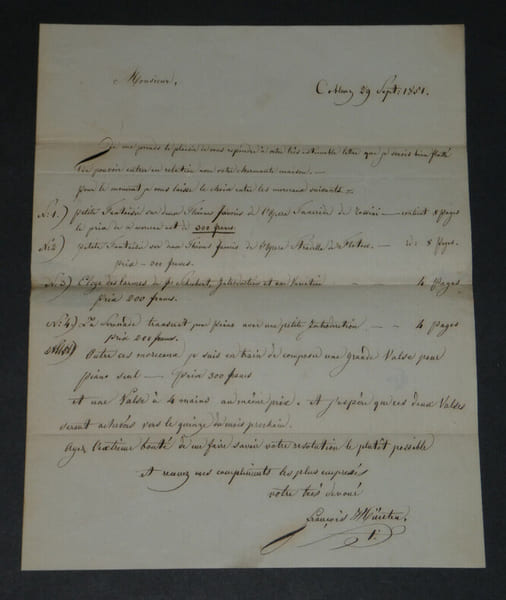 Monsieur,
Coblenz 29 Sept: 1851.
Je me prends le plaisir de vous repondre à votre très estimable lettre que je serais bien flatté
de pouvoir entrer en relation avec votre charmante maison. —
Pour le moment je vous laisse le choix entre les morceaux suivants =
No: 1.) petite Fantaisie sur deux Thèmes favoris de l'Opera Tancrède de Rossini — contient 8 pages
le prix de ce morceau est de 300 francs.
No 2) petite Fantaisie sur deux Thèmes favoris de l'Opera Stradella de Flotow — id: 8 pages.
prix — 300 francs.
No: 3) Eloge des larmes de Fr Schubert, Introduction et 4 Pages
prix 200 francs.
No: 4) La Serenade transcrit pour piano avec une petite Introduction — 4 pages
prix 200 francs.
Outre ces morceaux je suis en train de composer une grande Valse pour
piano seul — Prix 300 francs
et une Valse à 4 mains au même prix. et j'espère que ces deux Valses
seront achevées vers le quinze du mois prochain.
Ayez l'extrême bonté de me faire savoir votre resolution le plutôt possible
et recevez mes compliments les plus empressés
votre très devoué
François Hünten.